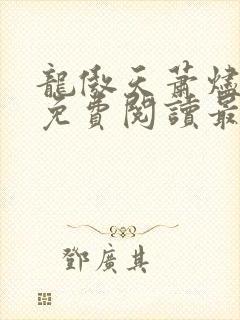 龍傲天蕭燼
免費閱讀最
鄧廣其